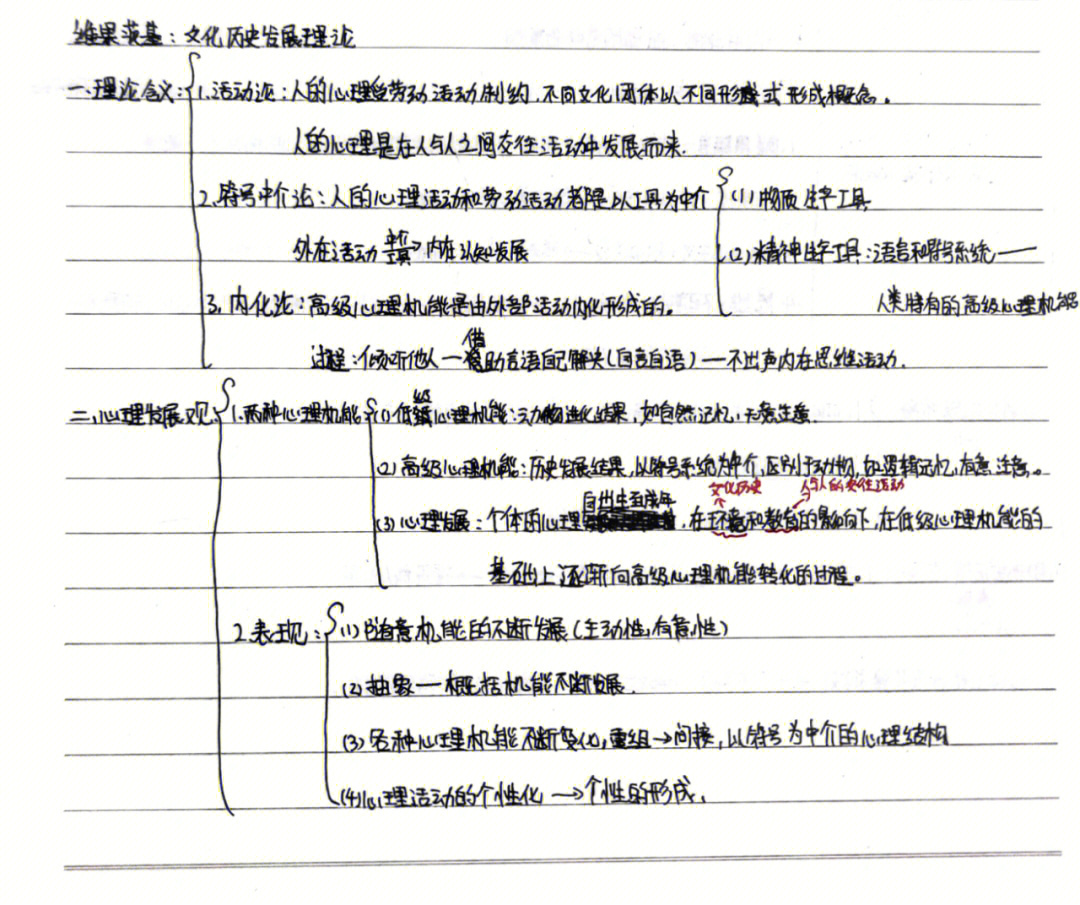 维果茨基：文化历史发展理论
一、理论含义：1、活动论：人的心理受劳动活动制约，不同文化团体以不同形式形成概念。
人的心理是在人与人之间交往活动中发展而来.
2、符号中介论：人的心理活动和劳动活动都是以工具为中介 (1)物质生产工具
外在活动 工具→内在认知发展 (2)精神生产工具：语言和符号系统——
3、内化论：高级心理机能是由外部活动内化形成的。 人类特有的高级心理机能
过程：倾听他人—借助言语自己解决(自言自语)—不出声内在思维活动.
二、心理发展观：1、两种心理机能 (1)低级心理机能：动物进化结果，如自然记忆，无意注意.
(2)高级心理机能：历史发展结果，以符号系统为中介，区别于动物，如逻辑记忆，有意注意。
文化历史 人与人的交往活动
(3)心理发展：个体的心理自出生到成年，在环境和教育的影响下，在低级心理机能的
基础上逐渐向高级心理机能转化的过程。
2.表现：(1)随意机能的不断发展(主动性,有意性)
(2)抽象—概括机能不断发展.
(3)各种心理机能不断变化,重组→间接，以符号为中介的心理结构
(4)心理活动的个性化→个性的形成.